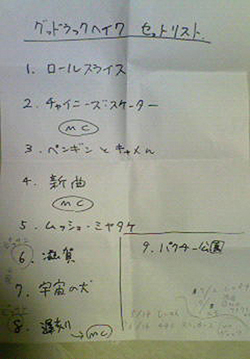 グッドラックヘイワ セットリスト
1. ロールスライス
2. チャイニーズ・スケーター
MC
3. ペンギンとキャメル
4. 新曲
MC
5. ムッシュ・ミヤタケ
6. 滋賀
7. 宇宙の犬
8. 遅刻
→ MC
9. パクチー公園